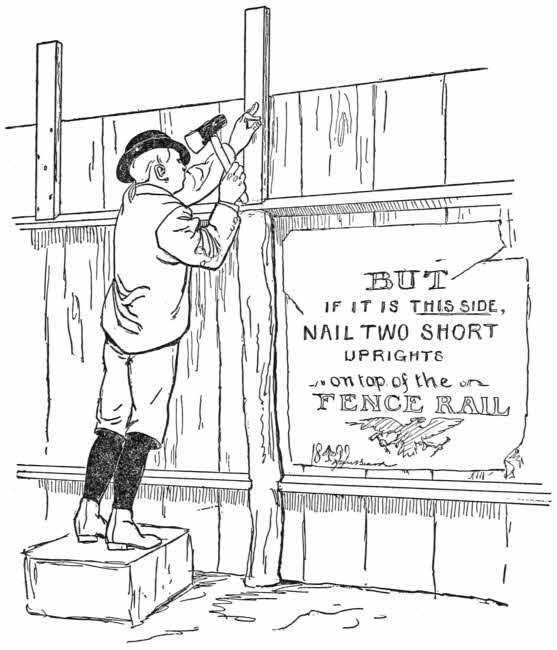 BUT
IF IT IS THIS SIDE,
NAIL TWO SHORT
UPRIGHTS
on top of the
FENCE RAIL